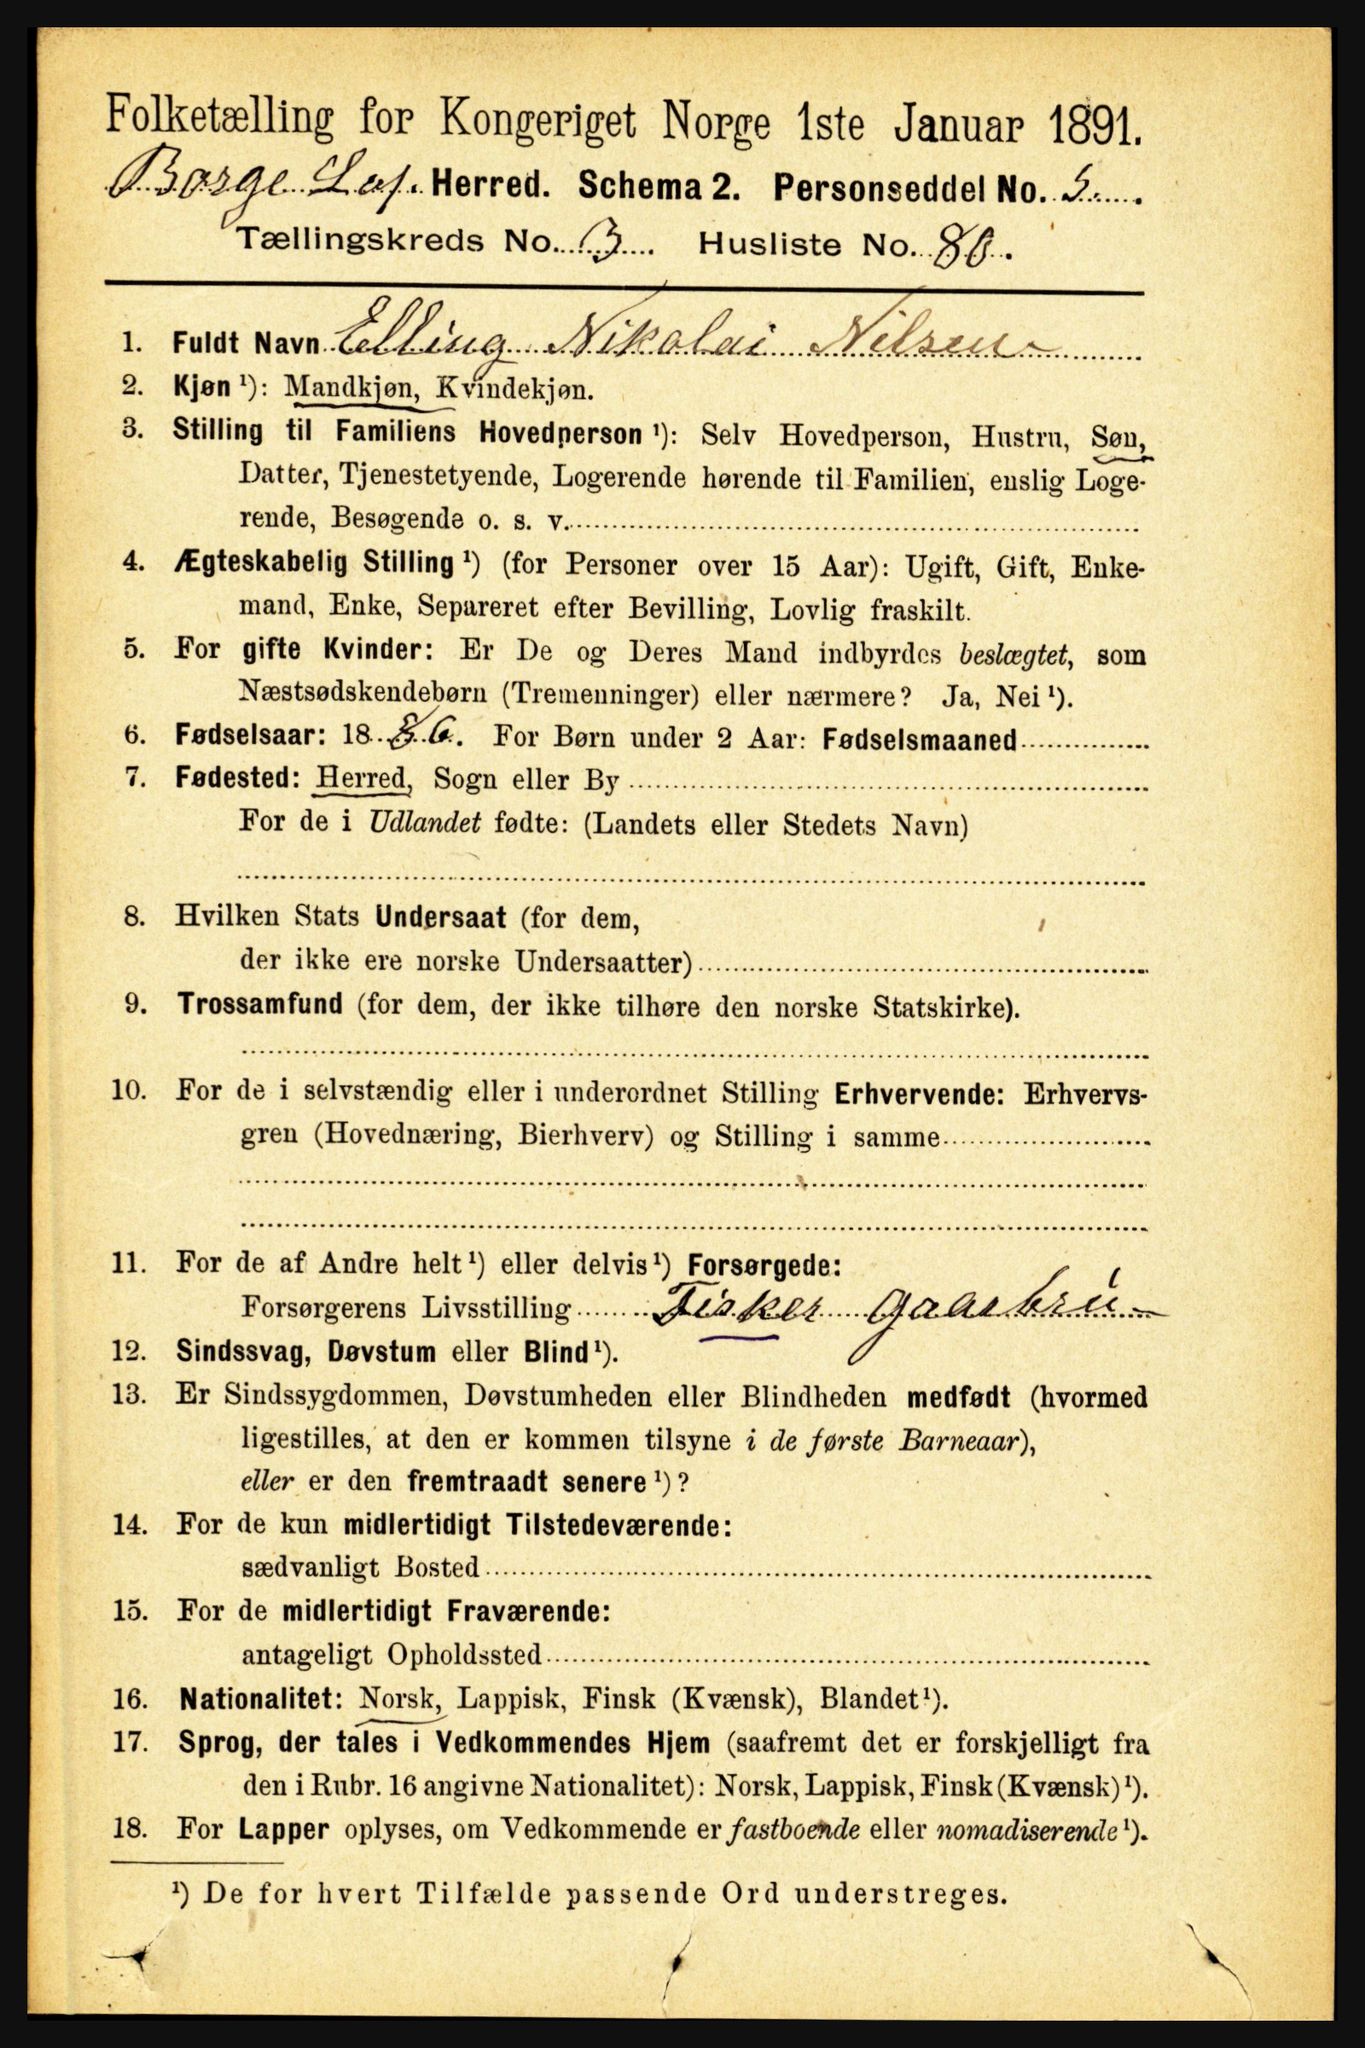 Folketælling for Kongeriget Norge 1ste Januar 1891.
Borge Lof. Herred. Schema 2. Personseddel No. 5.
Tællingskreds No. 3. Husliste No. 80.
1. Fuldt Navn Elling Nikolai Nilsen
2. Kjøn ¹): Mandkjøn, Kvindekjøn.
3. Stilling til Familiens Hovedperson ¹): Selv Hovedperson, Hustru, Søn,
Datter, Tjenestetyende, Logerende hørende til Familien, enslig Loge-
rende, Besøgende o. s. v.
4. Ægteskabelig Stilling ¹) (for Personer over 15 Aar): Ugift, Gift, Enke-
mand, Enke, Separeret efter Bevilling, Lovlig fraskilt.
5. For gifte Kvinder: Er De og Deres Mand indbyrdes beslægtet, som
Næstsødskendebørn (Tremenninger) eller nærmere? Ja, Nei ¹).
6. Fødselsaar: 1886. For Børn under 2 Aar: Fødselsmaaned
7. Fødested: Herred, Sogn eller By
For de i Udlandet fødte: (Landets eller Stedets Navn)
8. Hvilken Stats Undersaat (for dem,
der ikke ere norske Undersaatter)
9. Trossamfund (for dem, der ikke tilhøre den norske Statskirke).
10. For de i selvstændig eller i underordnet Stilling Erhvervende: Erhvervs-
gren (Hovednæring, Bierhverv) og Stilling i samme
11. For de af Andre helt ¹) eller delvis ¹) Forsørgede:
Forsørgerens Livsstilling Fisker Gaarbru
12. Sindssvag, Døvstum eller Blind ¹).
13. Er Sindssygdommen, Døvstumheden eller Blindheden medfødt (hvormed
ligestilles, at den er kommen tilsyne i de første Barneaar),
eller er den fremtraadt senere ¹)?
14. For de kun midlertidigt Tilstedeværende:
sædvanligt Bosted
15. For de midlertidigt Fraværende:
antageligt Opholdssted
16. Nationalitet: Norsk, Lappisk, Finsk (Kvænsk), Blandet ¹).
17. Sprog, der tales i Vedkommendes Hjem (saafremt det er forskjelligt fra
den i Rubr. 16 angivne Nationalitet): Norsk, Lappisk, Finsk (Kvænsk) ¹).
18. For Lapper oplyses, om Vedkommende er fastboende eller nomadiserende ¹).
¹) De for hvert Tilfælde passende Ord understreges.